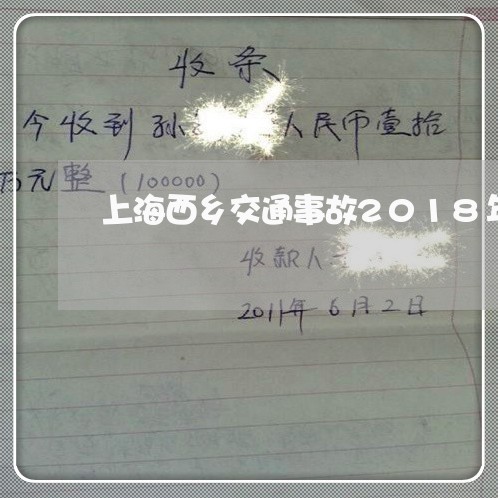 收条
今收到孙 人民币壹拾
万元整(100000)
上海西乡交通事故2018年
收款人
2011年6月2日